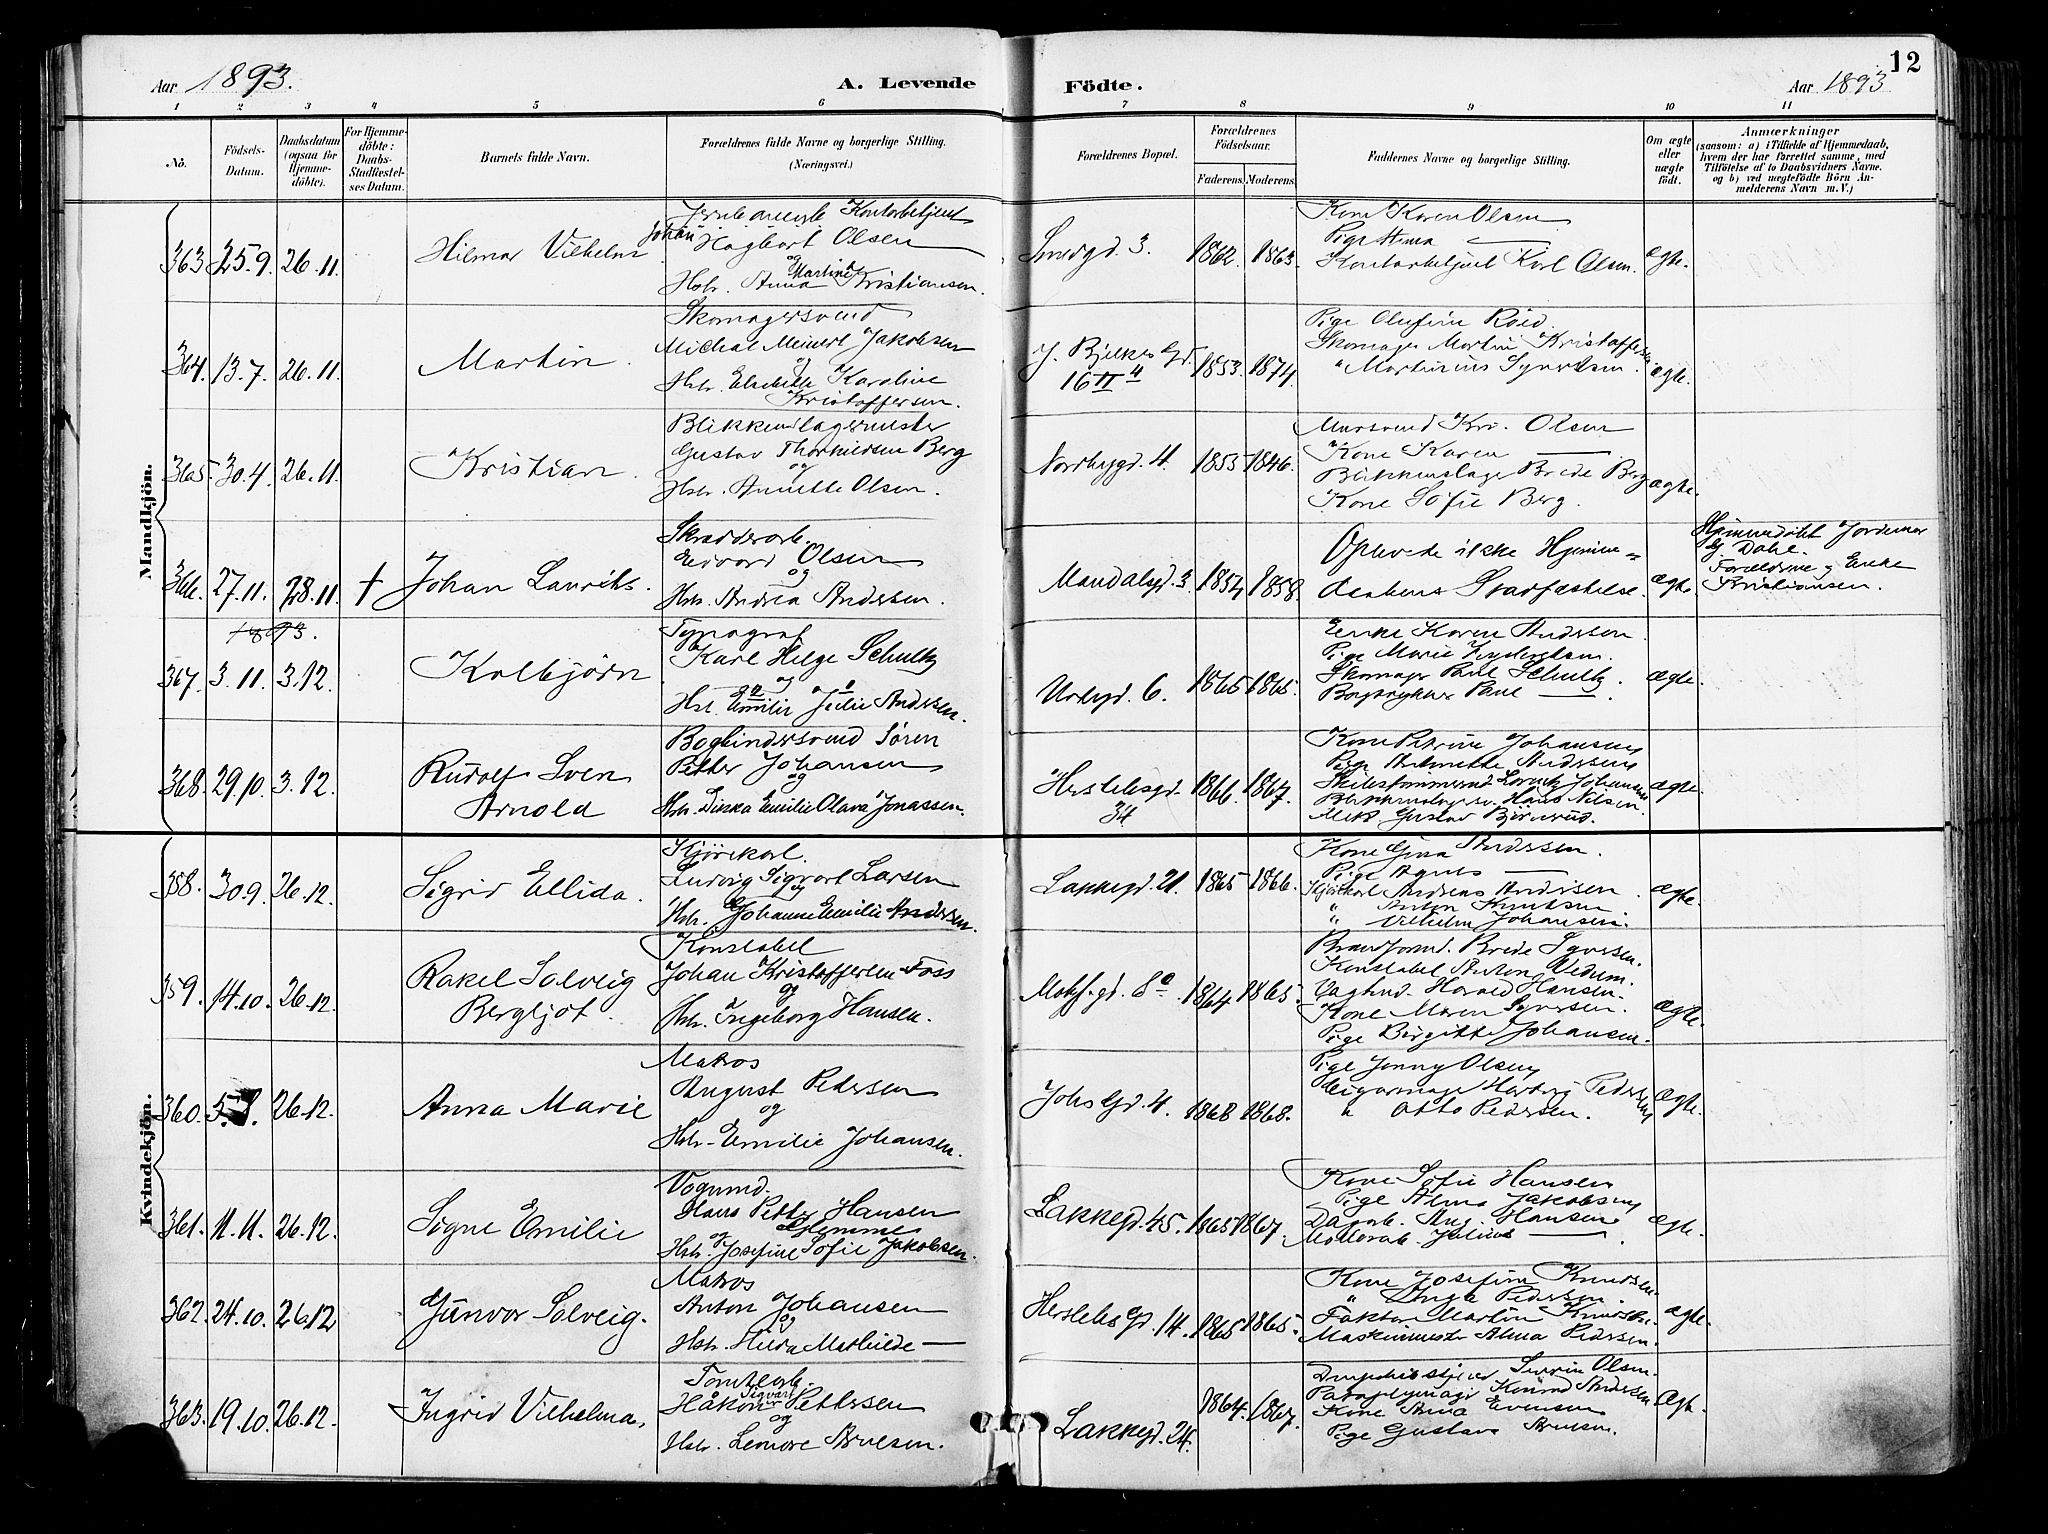 12
Aar 1893.
A. Levende
Födte.
Aar 1893
1 2 3 4 5 6 7 8 9 10 11
No.
Födsels-Datum.
Daabsdatum (ogsaa for Hjemmedöbte).
For Hjemmedöbte: Daabs-Stadfæstelses Datum.
Barnets fulde Navn.
Forældrenes fulde Navne og borgerlige Stilling.
(Næringsvei.)
Forældrenes Bopæl.
Forældrenes Födselsaar.
Faderens. Moderens.
Faddernes Navne og borgerlige Stilling.
Om ægte eller uægte födt.
Anmærkninger
(saasom: a) i Tilfælde af Hjemmedaab, hvem der har forrettet samme, med Tilföielse af to Daabsvidners Navne. og b) ved uægtefödte Börn Anmelderens Navn m. V.)
Mandkjön.
363. 25.9. 26.11.
Hilmar Vilhelm
Kontorbetjent
Johan Hagbart Olsen
og
Hstr. Anna Martine Kristiansen.
Smedgd. 3.
1862. 1863.
Kone Karen Olsen
Pige Anna —
Kontorbetjent Karl Olsen.
ægte.
364. 13.7. 26.11.
Martin.
Skomagersvend
Michal Meinert Jakobsen
og
Hstr. Elisabeth Karoline
Kristoffersen.
J. Bjelkes Gd.
16 II 4
1853. 1874.
Pige Olufine Röed.
Skomager Martin Kristoffersen
" Martinius Syvertsen.
ægte.
365. 30.4. 26.11.
Kristian.
Blikkenslagermester
Gustav Berg
og
Hstr. Annette Olsen.
Nordbygd. 4.
1855 1846.
Mursvend Kr. Olsen
Kone Karen —
Blikkenslager Brede Berg
Kone Sofie Berg.
ægte.
366. 27.11. 28.11 †
Johan Lauritz.
Skrædderarb.
Edvard Olsen
og
Hstr. Andrea Andersen.
Mandalsgd. 3.
1854 1858.
Oplevede ikke Hjemme-
daabens Stadfæstelse.
ægte.
Hjemmedöbt Jordemor
Dahl.
Forældrene og Enke
Kristiansen.
1893.
367. 3.11. 3.12.
Kolbjörn
Typograf
Karl Helge Schultz
og
Hstr. Emilie Julie Andersen.
Urtegd. 6.
1865 1865.
Enke Karen Andersen.
Pige Marie
Skomager Paul Schultz.
Bogtrykker Paul —
ægte.
368. 29.10. 3.12.
Rudolf Sven
Arnold
Bogbindersvend Sören
Petter Johansen
og
Hstr. Emilie Olava Jonassen.
Herslebsgd.
34
1866. 1867.
Kone Petrine Johansen
Pige Antonette Andersen
Skibstömmermd Lorentz Johansen
Blikkenslagersv. Hans Nilsen
Gustav Björnerud.
ægte.
Kvindekjön.
358. 30.9. 26.12.
Sigrid Ellida.
Kjörekarl.
Ludvig Sigvart Larsen
og
Hstr. Johanne Emilie Andersen.
Lakkegd. 21.
1865 1866.
Kone Gina Andersen.
Pige Agnes —
Kjörekarl Andreas Andersen
" Anton Knudsen
" Vilhelm Johansen.
ægte.
359. 14.10. 26.12.
Rakel Solveig
Bergljot.
Konstabel
Johan Kristoffersen Foss
og
Hstr. Ingeborg Hansen.
Motzf.gd. 8 a.
1864 1865.
Brandformd. Brede Syversen.
Konstabel Anton Vedum.
Vagtmd. Harald Hansen.
Kone Maren Syversen.
Pige Birgitte Johansen.
ægte.
360. 26.12.
Anna Marie
Matros
August Pedersen
og
Hstr. Emilie Johansen.
Johs Gd. 4.
1868 1868.
Pige Jenny Olsen
Cigarmager Hartvig Pedersen
" Otto Pedersen.
ægte.
361. 11.11. 26.12.
Signe Emilie
Vognmd.
Hans Petter Hansen
Glemme
og
Hstr. Josefine Sofie Jakobsen.
Lakkegd. 45.
1865 1867.
Kone Sofie Hansen
Pige Alma Jakobsen
Dagarb. Aug. Hansen
Julius —
ægte.
362. 24.10. 26.12
Gunvor Solveig.
Matros
Anton Johansen
og
Hstr. Hilda Mathilde —
Herslebs Gd. 14.
1865 1865.
Kone Josefine Knudsen.
" Inga Pedersen.
Faktor Martin Knudsen.
Maskinmester Alma Pedersen.
ægte.
363. 19.10. 26.12.
Ingrid Vilhelma.
Tomtearb.
Håkon Sigvart Pettersen
og
Hstr. Leonore Arnesen.
Lakkegd. 24.
1864. 1867.
Severin Olsen.
Paraplymager Konrad Andersen
Kone Anna Evensen
Pige Gustava Arnesen.
Ægte.